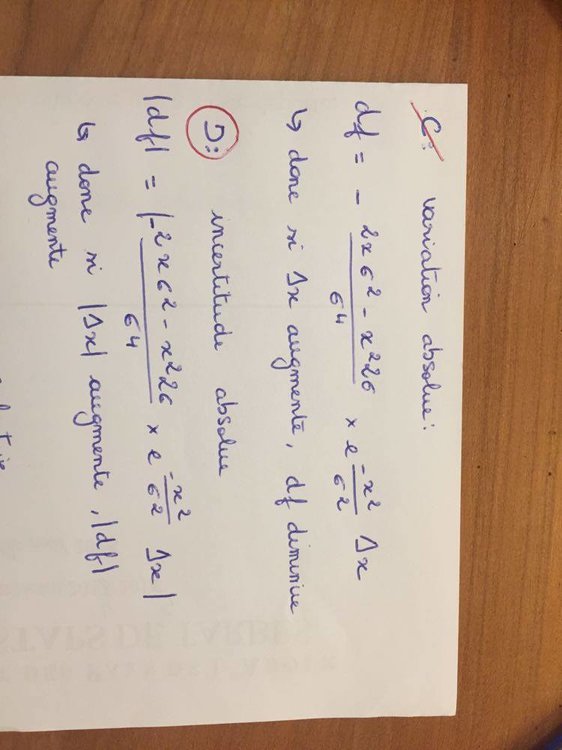 C: variation absolue:
df = - (2xσ² - x²2σ)/σ⁴ × e^(-x²/σ²) Δx
↳ donc si Δx augmente, df diminue
D: incertitude absolue
|df| = |-(2xσ² - x²2σ)/σ⁴ × e^(-x²/σ²) Δx|
↳ donc si |Δx| augmente, |df|
augmente
STAPS DE TARBES